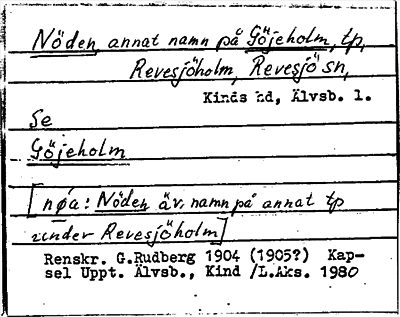 Nöden, annat namn på Göjeholm, tp,
Revesjöholm, Revesjö sn,
Kinds hd, Älvsb. l.
Se
Göjeholm
[nøa: Nöden äv. namn på annat tp
under Revesjöholm]
Renskr. G.Rudberg 1904 (1905?) Kap-
sel Uppt. Älvsb., Kind /L.Aks. 1980